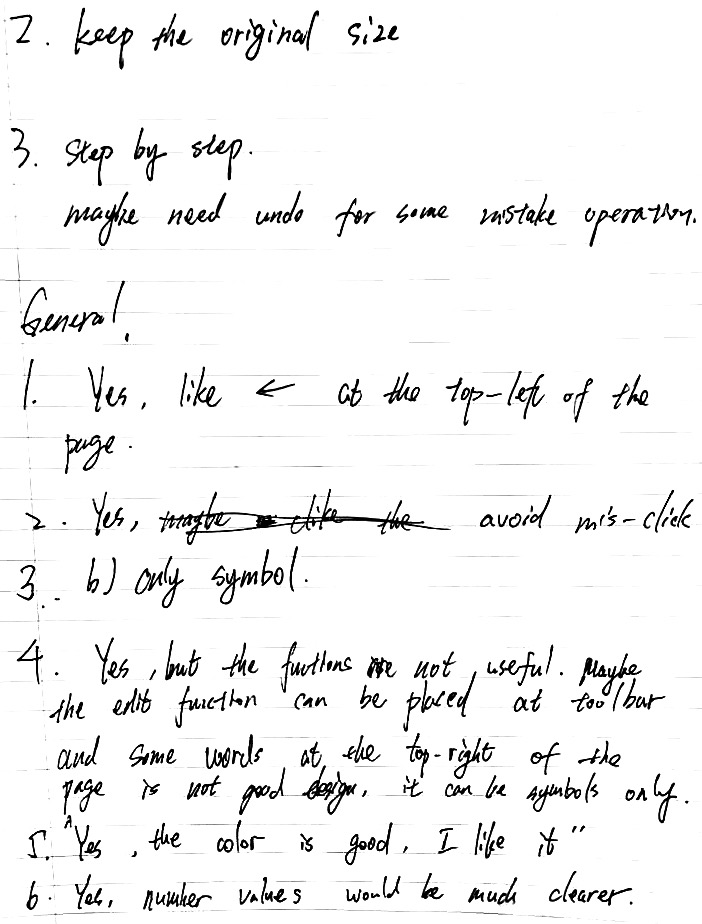 2. keep the original size
3. step by step.
maybe need undo for some mistake operation.
General.
1. Yes, like ← at the top-left of the
page.
2. Yes, maybe like the avoid mis-click
3. b) only symbol.
4. Yes, but the functions are not useful. Maybe
the edit function can be placed at toolbar
and some words at the top-right of the
page is not good design, it can be symbols only.
5. "Yes, the color is good, I like it"
6. Yes, number values would be much clearer.